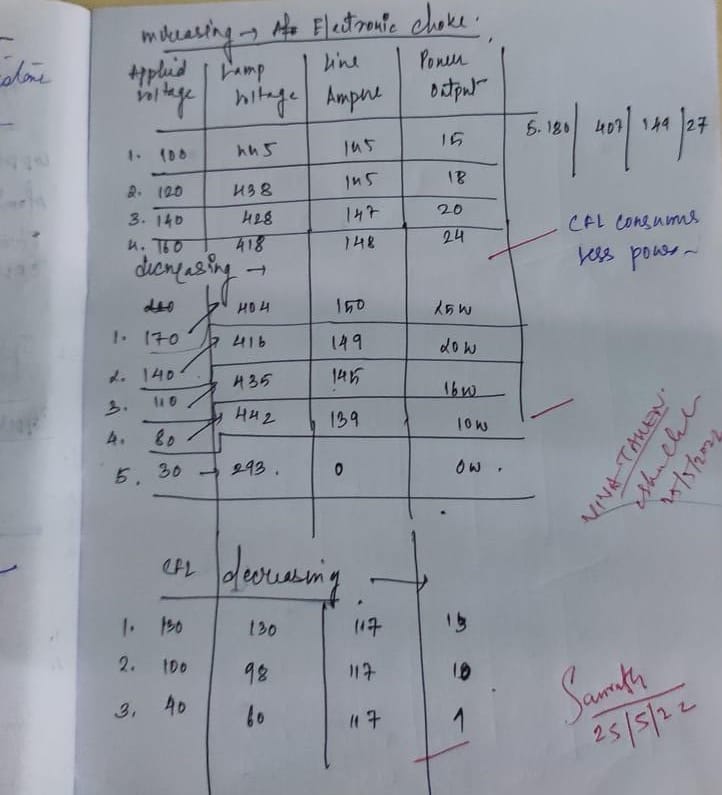 increasing → Electronic choke.
Applied voltage | Lamp voltage | Line Ampere | Power Output
1. 100 | 445 | 145 | 15
2. 120 | 438 | 145 | 18
3. 140 | 428 | 147 | 20
4. 160 | 418 | 148 | 24
5. 180 | 407 | 149 | 27
CFL consumes
less power
decreasing →
404 | 150 | 25W
1. 170 → 416 | 149 | 20W
2. 140 → 435 | 145 | 16W
3. 110 → 442 | 139 | 10W
4. 80
5. 30 → 293. | 0 | 0W.
VIVA-TAKEN.
CFL decreasing →
1. 130 | 130 | 117 | 13
2. 100 | 98 | 117 | 10
3. 40 | 60 | 117 | 1
25/5/22